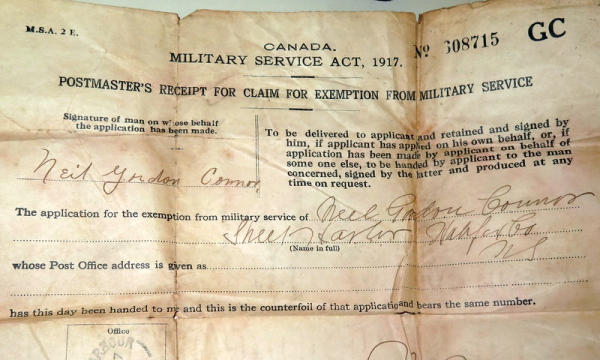 M.S.A. 2 E.
CANADA.
MILITARY SERVICE ACT, 1917.
No 608715
GC
POSTMASTER'S RECEIPT FOR CLAIM FOR EXEMPTION FROM MILITARY SERVICE
Signature of man on whose behalf
the application has been made.
Neil Gordon Connor
To be delivered to applicant and retained and signed by
him, if applicant has applied on his own behalf, or, if
application has been made by applicant on behalf of
some one else, to be handed by applicant to the man
concerned, signed by the latter and produced at any
time on request.
The application for the exemption from military service of Neil Gordon Connor
Sheet Harbor Halifax Co
(Name in full)
NS
whose Post Office address is given as
has this day been handed to me and this is the counterfoil of that application and bears the same number.
Office